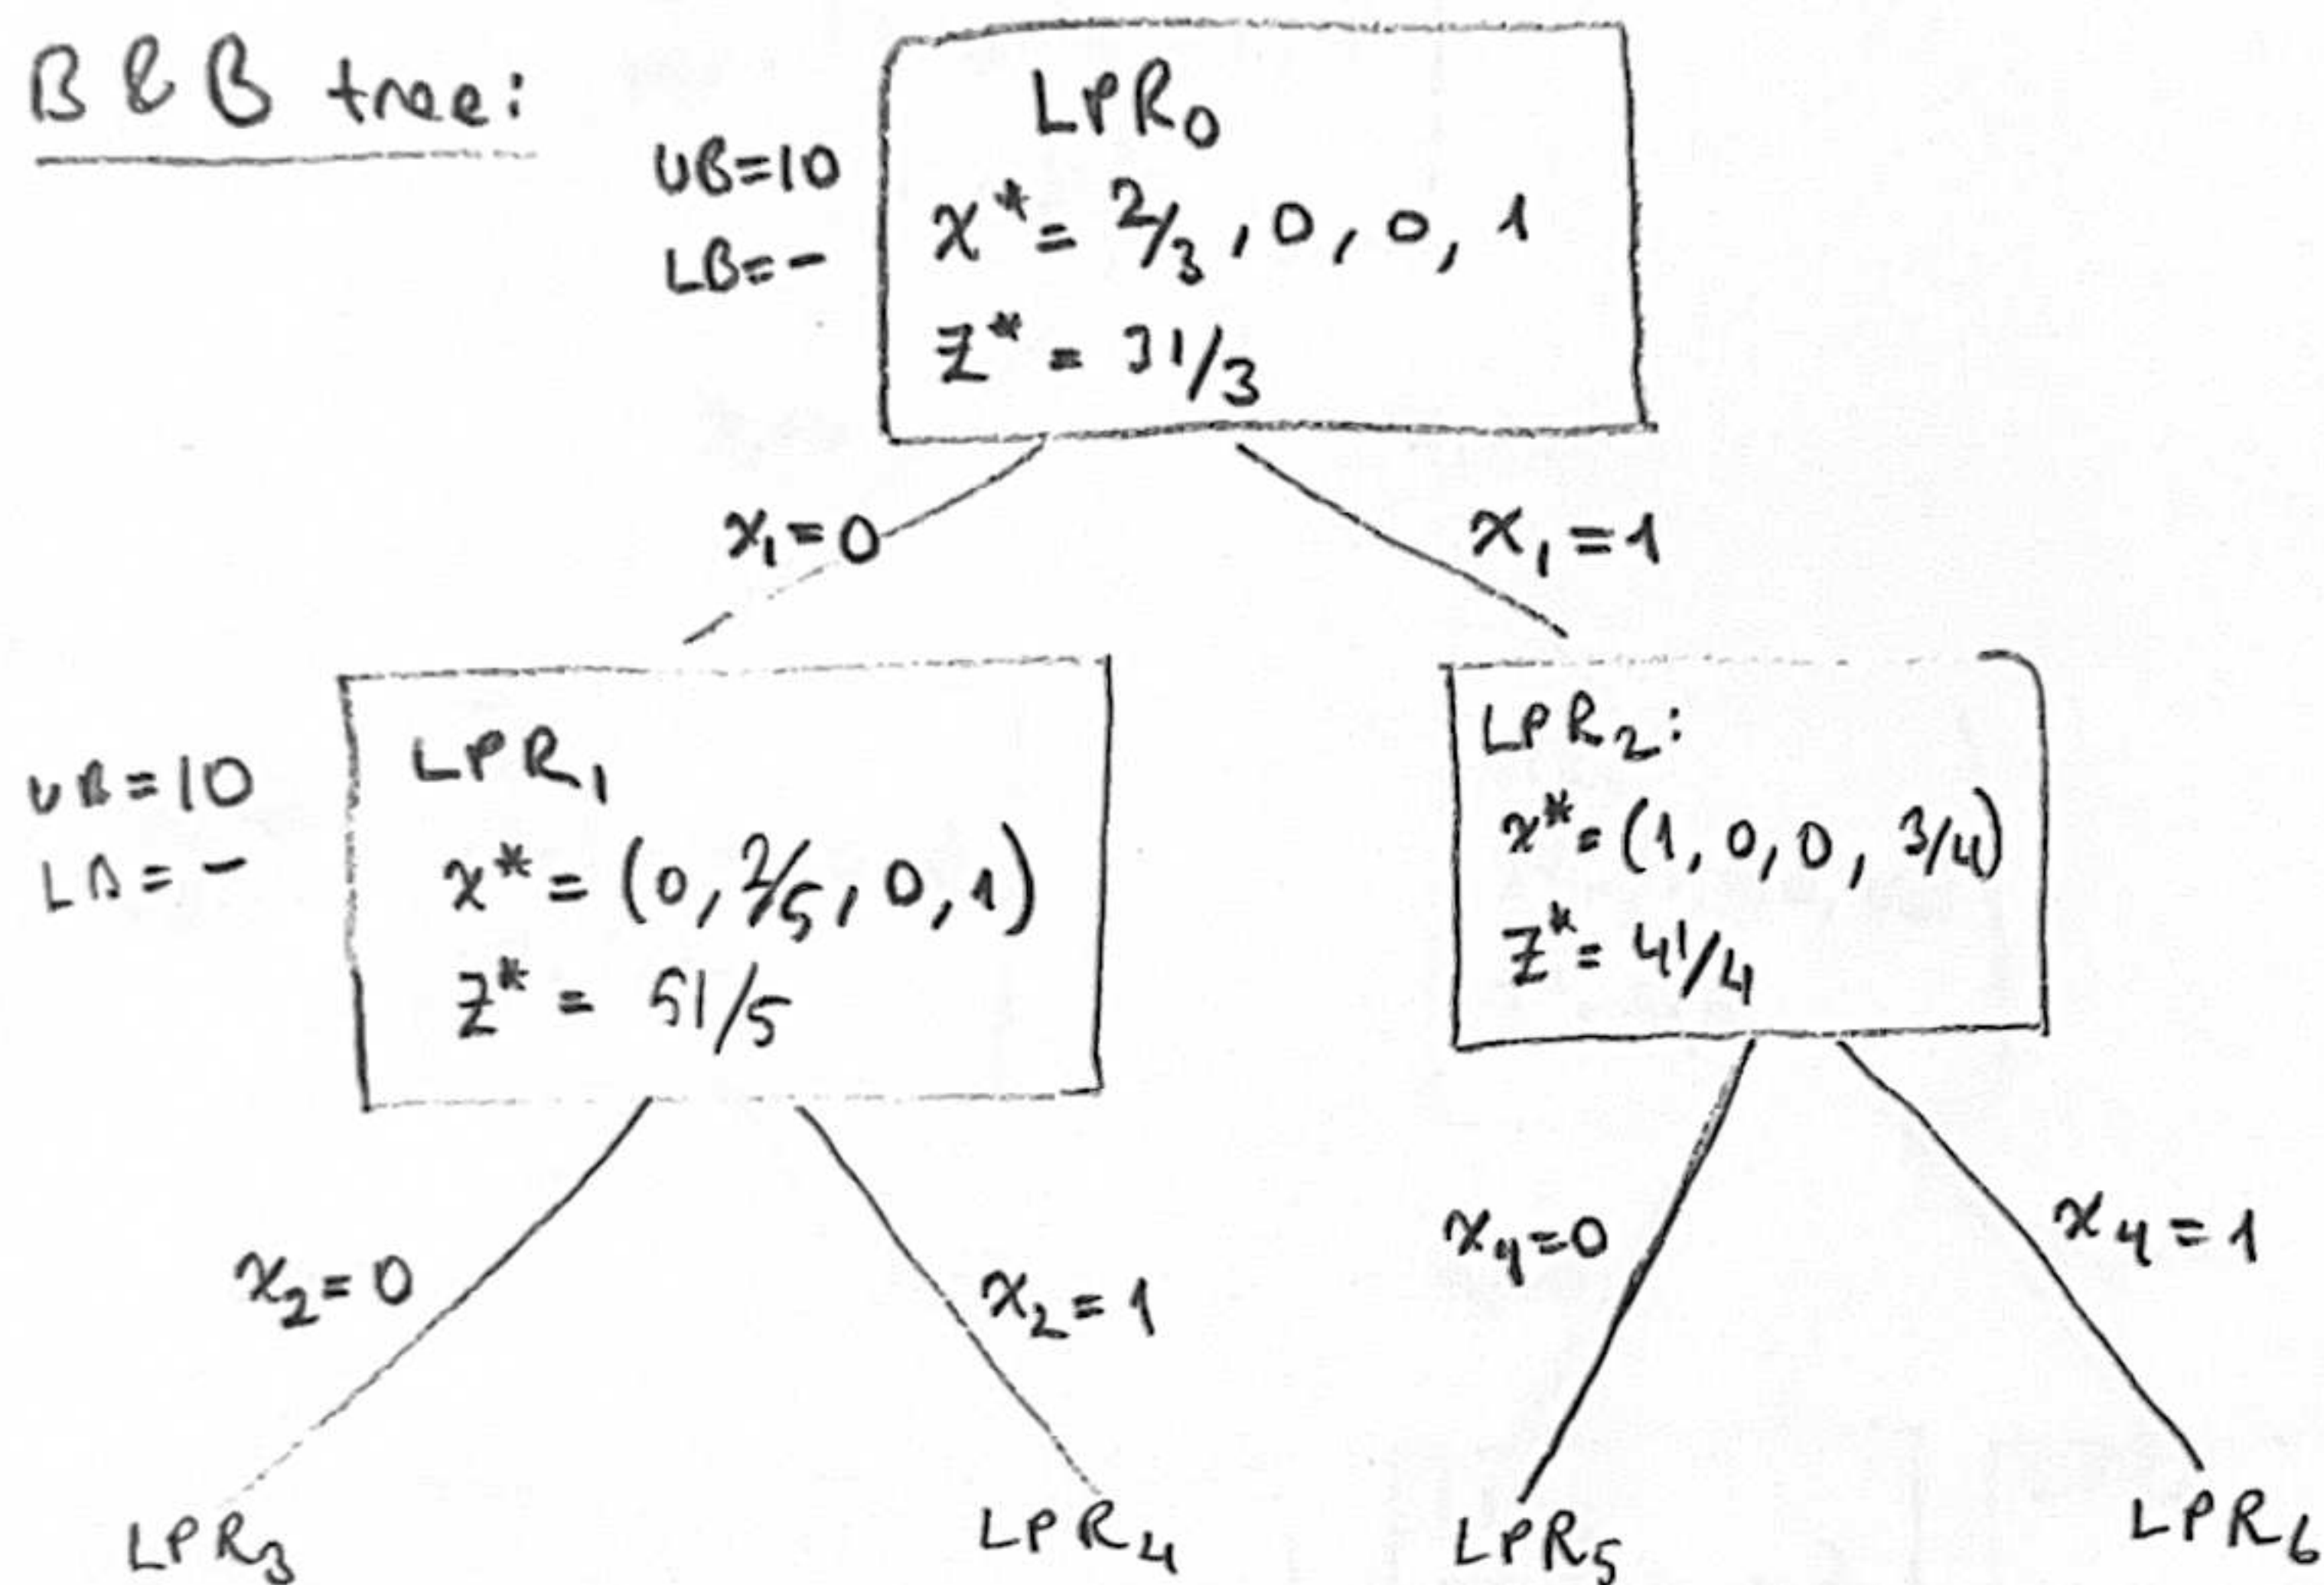 B & B tree:
UB=10
LB=-
LPR₀
x* = 2/3, 0, 0, 1
Z* = 31/3
x₁=0
x₁=1
UB=10
LB=-
LPR₁
x* = (0, 2/5, 0, 1)
Z* = 51/5
LPR₂:
x* = (1, 0, 0, 3/4)
Z* = 41/4
x₂=0
x₂=1
x₄=0
x₄=1
LPR₃
LPR₄
LPR₅
LPR₆